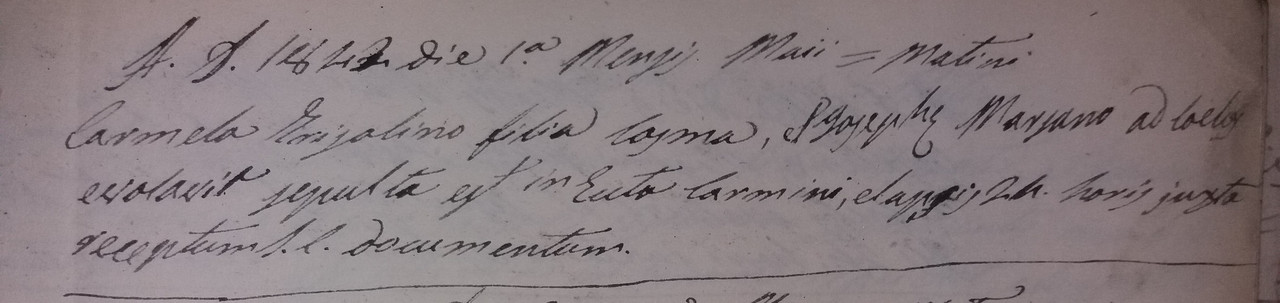 A. D. 1842 die 1a Mensis Maii = Matini
Carmela Grisolino filia Cosma, & Josephæ Marsano ad Coelos
evolavit sepulta est in Ecta Carmini, elapsis 24. horis juxta
receptum S. C. documentum.